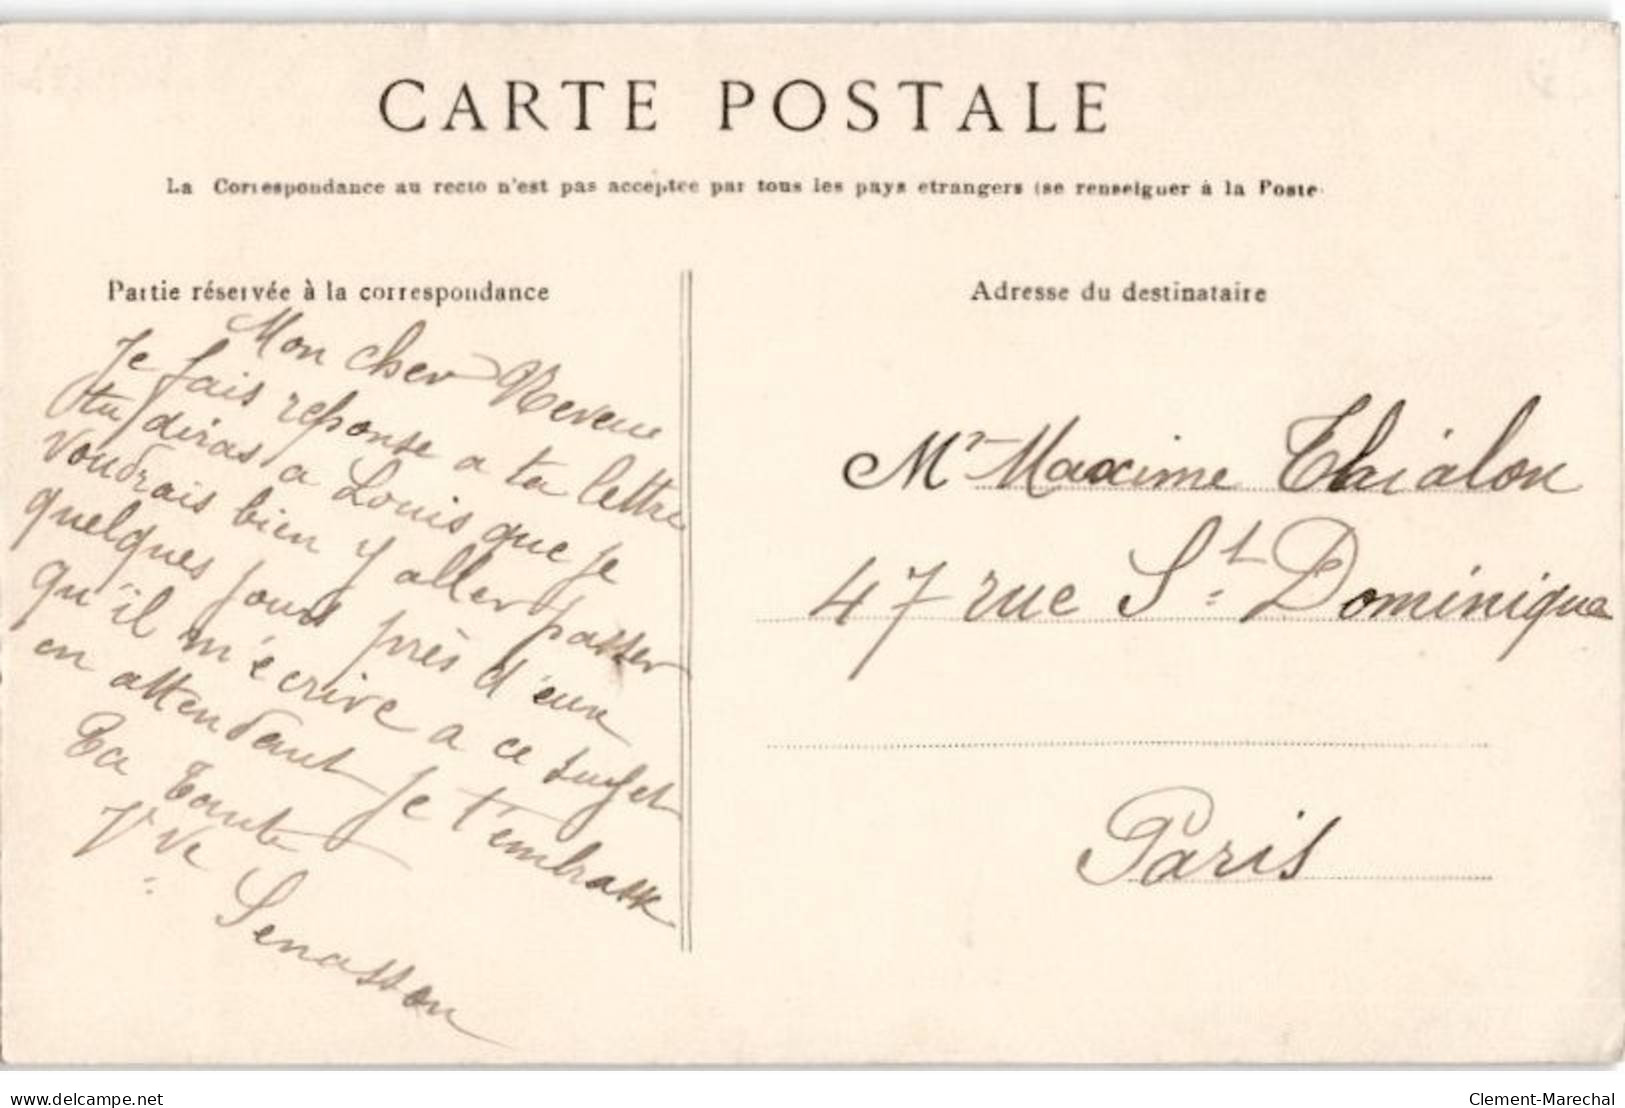 CARTE POSTALE
La Correspondance au recto n'est pas acceptee par tous les pays etrangers (se renseigner à la Poste
Partie réservée à la correspondance
Mon cher Neveu
Je fais reponse a ta lettre
tu diras a Louis que je
voudrais bien y aller passer
quelques jours près d'eux
qu'il m'écrive a ce sujet
en attendant je t'embrasse
Ta Tante
Vve Senasson
Adresse du destinataire
Mr Maxime Thialon
47 rue St Dominique
Paris
delcampe.net
Clement-Marechal